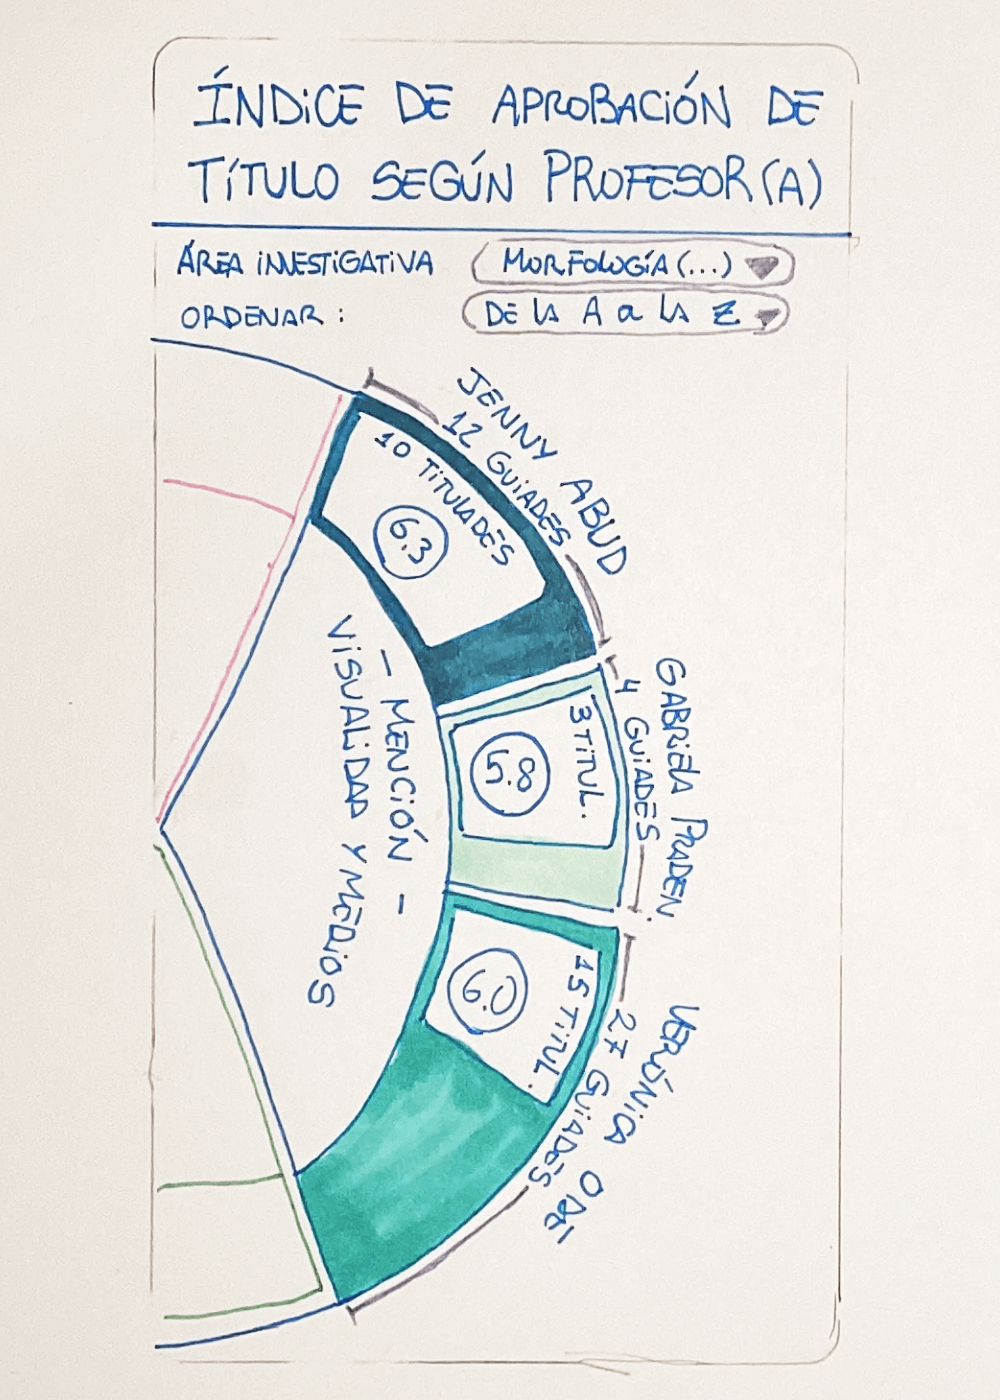 ÍNDICE DE APROBACIÓN DE
TÍTULO SEGÚN PROFESOR(A)
ÁREA INVESTIGATIVA
MORFOLOGÍA (...)
ORDENAR :
DE LA A a LA Z
JENNY ABUD
12 GUIADES
10 TITULADES
6.3
GABRIELA PRADEN.
4 GUIADES
3 TITUL.
5.8
VERÓNICA ODE-
27 GUIADES
15 TITUL.
6.0
- MENCIÓN -
VISUALIDAD Y MEDIOS